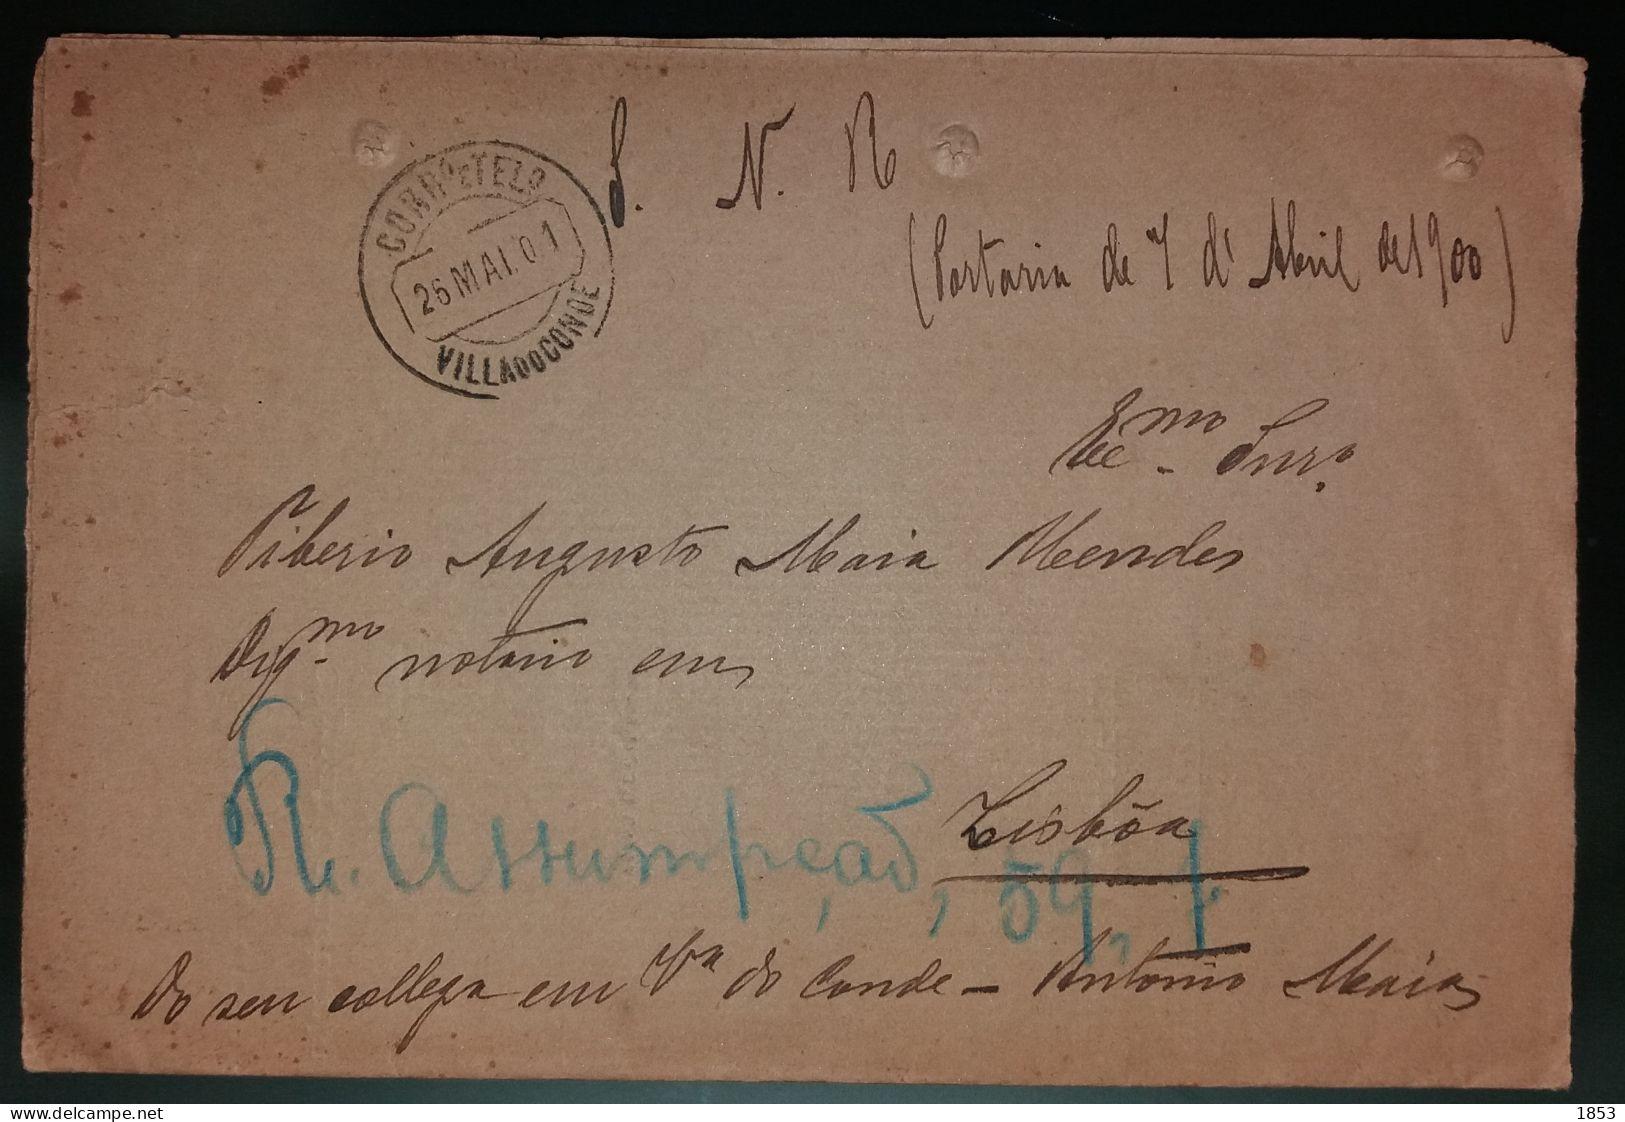 S. N. R
(Portaria de 7 d'Abril de 1900)
CORRº E TELº
26 MAI. 01
VILLA DO CONDE
Exmo Snro.
Tiberio Augusto Maia Mendes
Digmo notario em
Lisbôa
R. Assumpção, 59, 1.
Do seu collega em Va do Conde - Antonio Maia
www.delcampe.net
1853